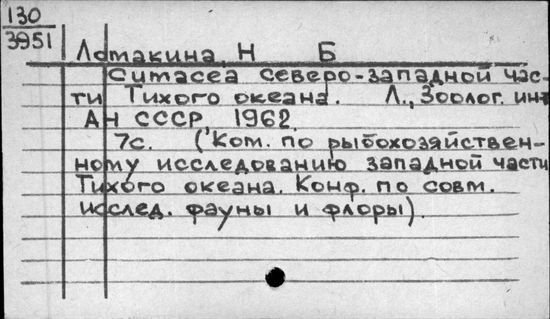 130
3951
Ломакина, Н Б
Cumacea северо-западной час-
ти Тихого океана. Л., Зоолог. инт
АН СССР, 1962.
7с. (Ком. по рыбохозяйствен-
ному исследованию западной части
Тихого океана. Конф. по совм.
исслед. фауны и флоры).